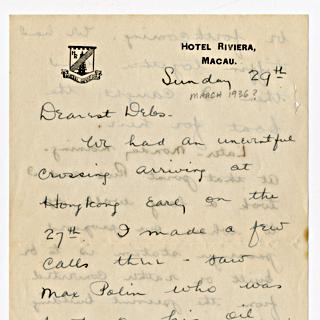 HOTEL RIVIERA,
MACAU.
Sunday 29th
MARCH 1936?
Dearest Debs.
We had an uneventful
crossing arriving at
Hongkong Early on the
27th. I made a few
calls thru - saw
Max Polin who was
his oil